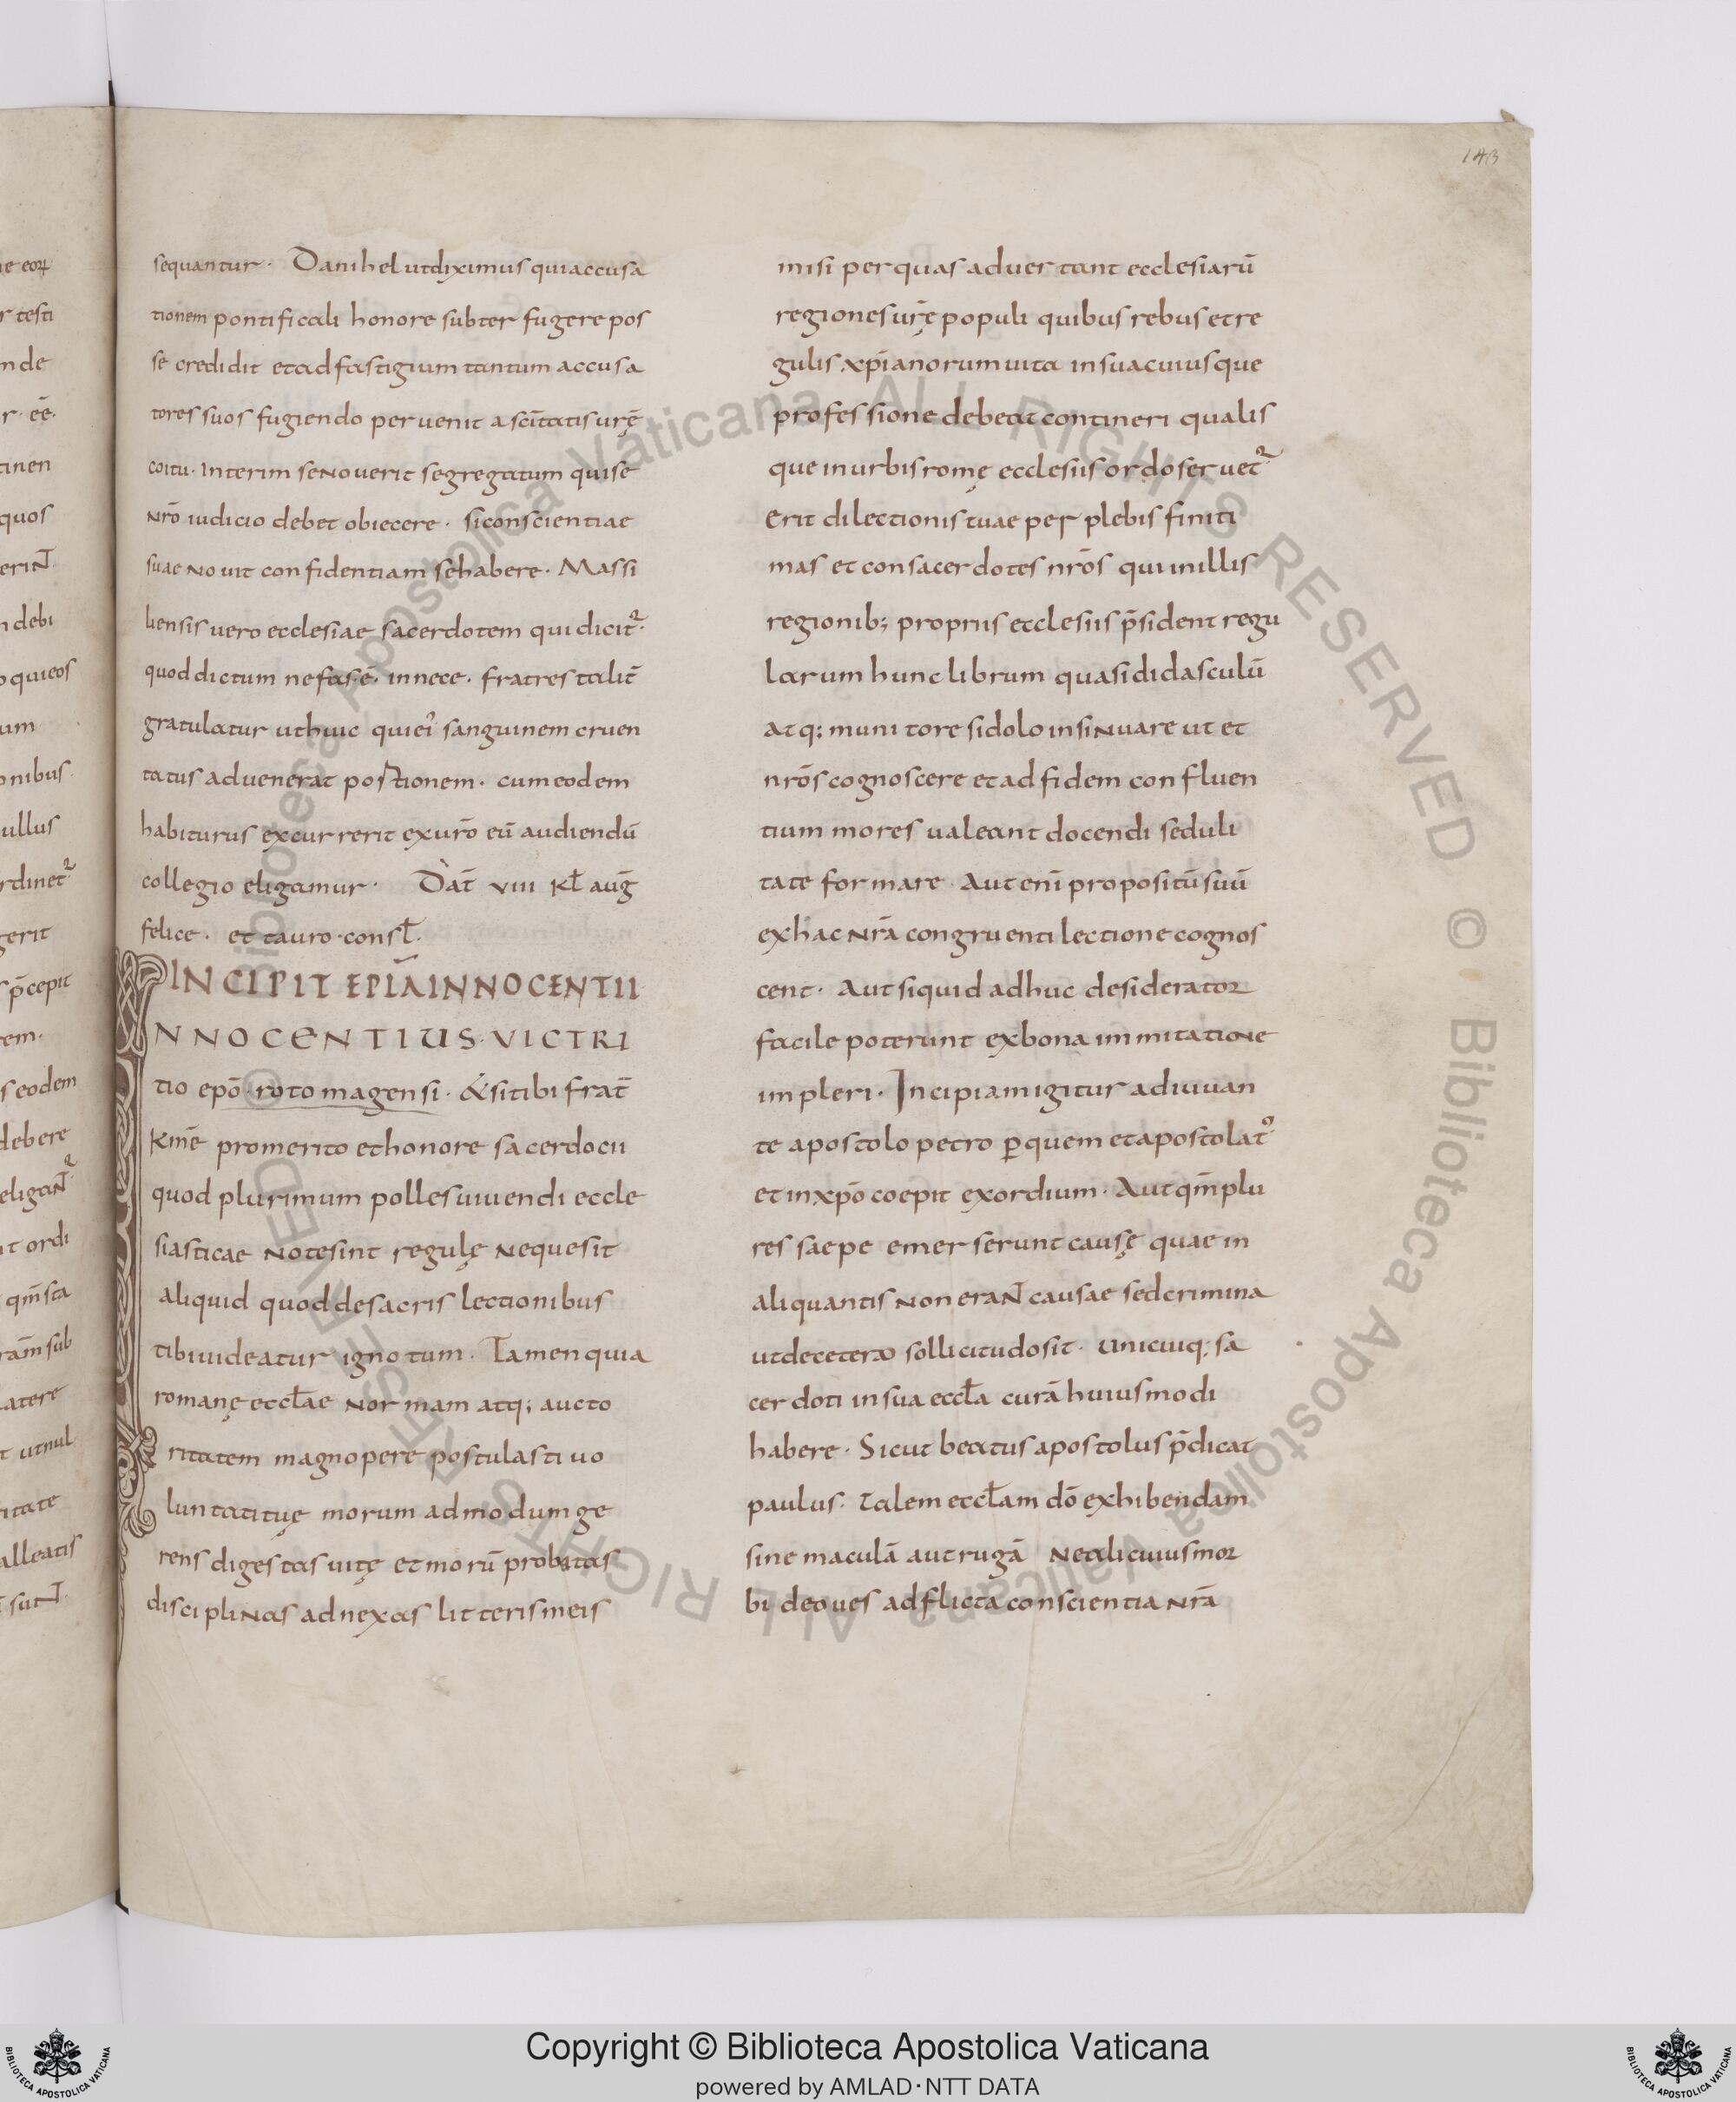 143
sequantur · Danihel utdiximus quiaccusa
tionem pontificali honore subter fugere pos
se credidit etadfastigium tantum accusa
tores suos fugiendo pervenit a sc̄itatis urę̄
coitu · Interim senoverit segregatum quise
nr̄o iudicio debet obiecere · siconscientiae
suae novit confidentiam sehabere · Massi
liensis uero ecclesiae sacerdotem qui dicit᷑ ·
quod dictum nefas·ē· innece · fratres talit̄
gratulatur uthuic quiei᷑ sanguinem cruen
tatus aduenerat portionem · cumeodem
habiturus excurrerit exur̄o eū audiendū
collegio eligamur · Dat̄ viii kł auḡ
felice · et tauro · consł ·
INCIPIT EPLĀ INNOCENTII
NNOCENTIUS · VICTRI
tio epō · rotomagensi · &sitibi frat̄
kmē promerito ethonore sacerdocii
quod plurimum polles uiuendi eccle
siasticae notesint regulę nequesit
aliquid quod desacris lectionibus
tibiuideatur ignotum · Tamen quia
romanę eccłae normam atq; aucto
ritatem magnopere postulasti uo
luntati tuę morum admodum ge
rens digestas uitę et morū probitas
disciplinas adnexas litterismeis
misi per quas aduertant ecclesiarū
regiones ur̄ę populi quibus rebus etre
gulis xp̄ianorum uita insuacuiusque
professione debeat contineri qualis
que inurbis romę ecclesiis ordo seruet᷑
erit dilectionis tuae per plebis finiti
mas et consacerdotes nr̄os qui inillis
regionib; propriis ecclesiis p̄sident regu
larum hunc librum quasi didasculū
atq; munitore sidolo insinuare ut et
nr̄os cognoscere et ad fidem confluen
tium mores ualeant docendi seduli
tate formare · Aut enī propositū suū
exhac nr̄a congruenti lectione cognos
cent · Aut siquid adhuc desiderator
facile poterunt exbona immitatione
impleri · Incipiam igitur adiuuan
te apostolo petro ꝑ quem et apostolat᷒
et in xpō coepit exordium · Aut qm̄ plu
res saepe emerserunt causę quae in
aliquantis non erant causae sed crimina
utdecetero sollicitudo sit · unicuiq; sa
cerdoti in sua eccła curā huiusmodi
habere · Sicut beatus apostolus p̄dicat
paulus · Talem eccłam dō exhibendam
sine maculā aut rugā ne alicuius mor
bi deoues adflicta conscientia nr̄a
Copyright © Biblioteca Apostolica Vaticana
powered by AMLAD·NTT DATA